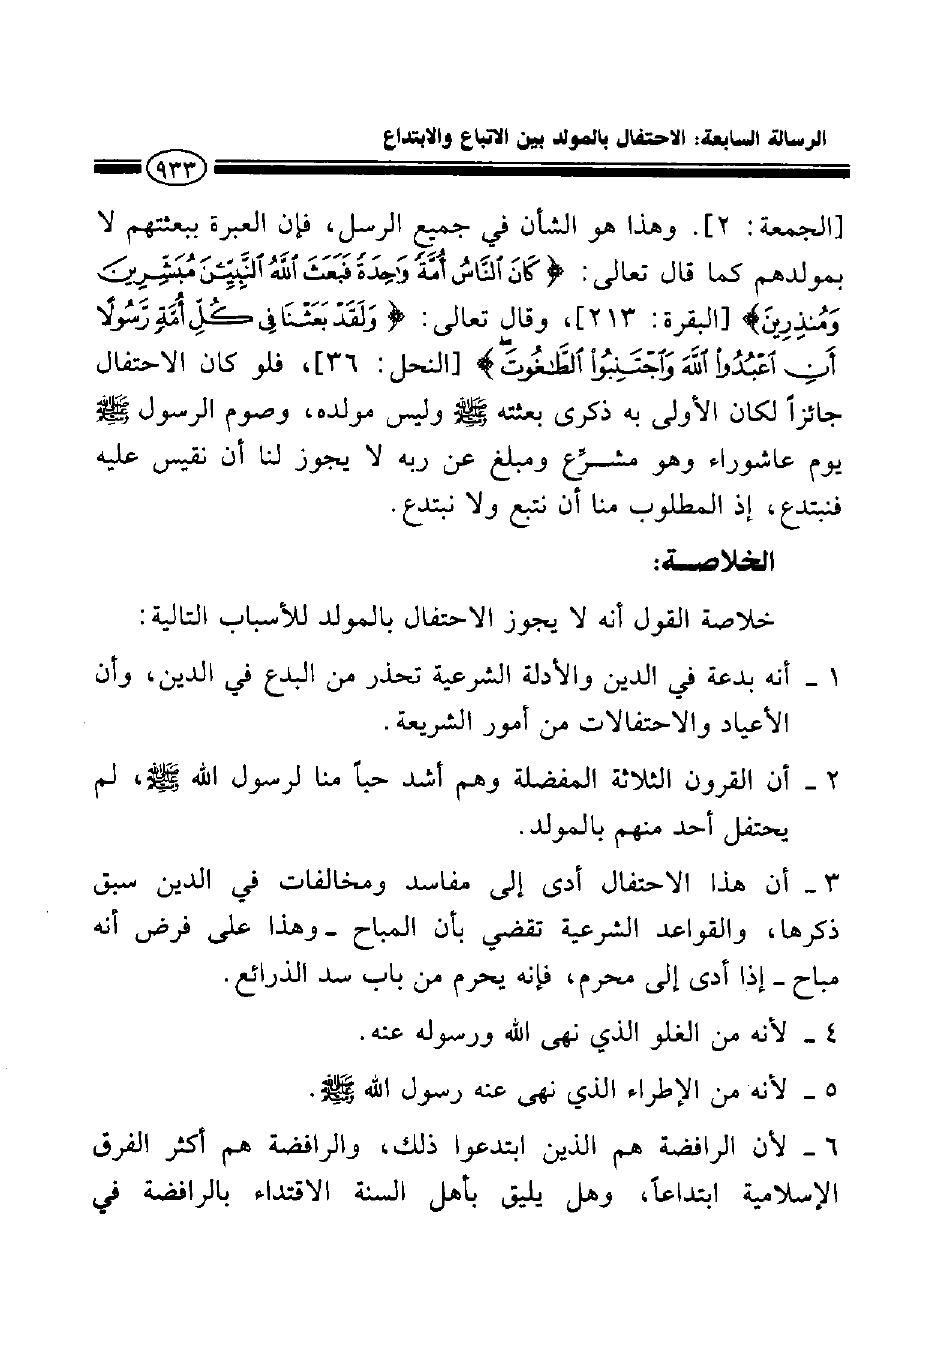 الرسالة السابعة: الاحتفال بالمولد بين الاتباع والابتداع
٩٣٣
[الجمعة: ٢]. وهذا هو الشأن في جميع الرسل، فإن العبرة ببعثتهم لا
بمولدهم كما قال تعالى: ﴿كَانَ ٱلنَّاسُ أُمَّةً وَٰحِدَةً فَبَعَثَ ٱللَّهُ ٱلنَّبِيِّـۧنَ مُبَشِّرِينَ
وَمُنذِرِينَ﴾ [البقرة: ٢١٣]، وقال تعالى: ﴿وَلَقَدْ بَعَثْنَا فِي كُلِّ أُمَّةٍ رَّسُولًا
أَنِ ٱعْبُدُوا۟ ٱللَّهَ وَٱجْتَنِبُوا۟ ٱلطَّـٰغُوتَ﴾ [النحل: ٣٦]، فلو كان الاحتفال
جائزاً لكان الأولى به ذكرى بعثته ﷺ وليس مولده، وصوم الرسول ﷺ
يوم عاشوراء وهو مشرِّع ومبلغ عن ربه لا يجوز لنا أن نقيس عليه
فنبتدع، إذ المطلوب منا أن نتبع ولا نبتدع.
الخلاصة:
خلاصة القول أنه لا يجوز الاحتفال بالمولد للأسباب التالية:
١ ـ أنه بدعة في الدين والأدلة الشرعية تحذر من البدع في الدين، وأن
الأعياد والاحتفالات من أمور الشريعة.
٢ ـ أن القرون الثلاثة المفضلة وهم أشد حباً منا لرسول الله ﷺ، لم
يحتفل أحد منهم بالمولد.
٣ ـ أن هذا الاحتفال أدى إلى مفاسد ومخالفات في الدين سبق
ذكرها، والقواعد الشرعية تقضي بأن المباح ـ وهذا على فرض أنه
مباح ـ إذا أدى إلى محرم، فإنه يحرم من باب سد الذرائع.
٤ ـ لأنه من الغلو الذي نهى الله ورسوله عنه.
٥ ـ لأنه من الإطراء الذي نهى عنه رسول الله ﷺ.
٦ ـ لأن الرافضة هم الذين ابتدعوا ذلك، والرافضة هم أكثر الفرق
الإسلامية ابتداعاً، وهل يليق بأهل السنة الاقتداء بالرافضة في